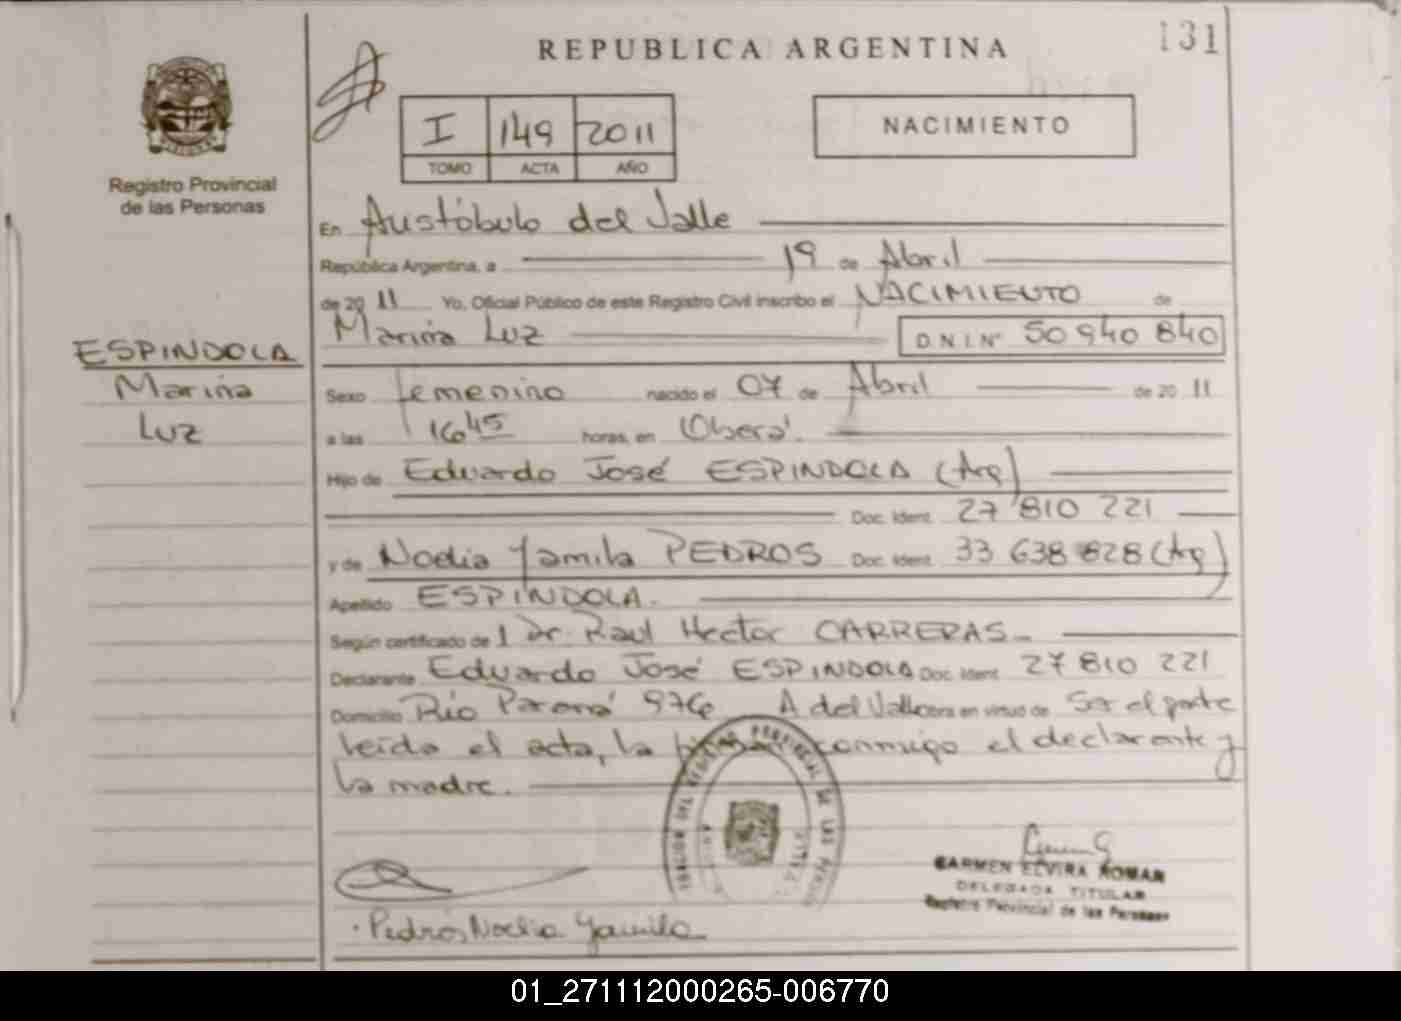 131
REPUBLICA ARGENTINA
I 149 2011
TOMO ACTA AÑO
NACIMIENTO
Registro Provincial
de las Personas
En Aristóbulo del Valle
República Argentina, a 19 de Abril
de 20 11 Yo, Oficial Público de este Registro Civil inscribo el NACIMIENTO de
Luz D.N.I. Nº 50 940 840
ESPINDOLA
Luz
Sexo femenino nacido el 07 de Abril de 20 11
a las 16 45 horas, en Oberá.
Hijo de Eduardo José ESPINDOLA (Arg)
Doc. Ident. 27 810 221
y de Noelia Yamila PEDROS Doc. Ident. 33 638 828 (Arg)
Apellido ESPINDOLA.
Según certificado de 1 Dr. Raul Hector CARRERAS
Declarante Eduardo José ESPINDOLA Doc. Ident. 27 810 221
Domicilio Río Paraná 976 A del Valle obra en virtud de Ser el padre
leída el acta, la conmigo el declarante y
la madre.
REGISTRO PROVINCIAL DE LAS
CARMEN ELVIRA ROMAN
DELEGADA TITULAR
Registro Provincial de las Personas
Pedrós Noelia Yamila
01_271112000265-006770